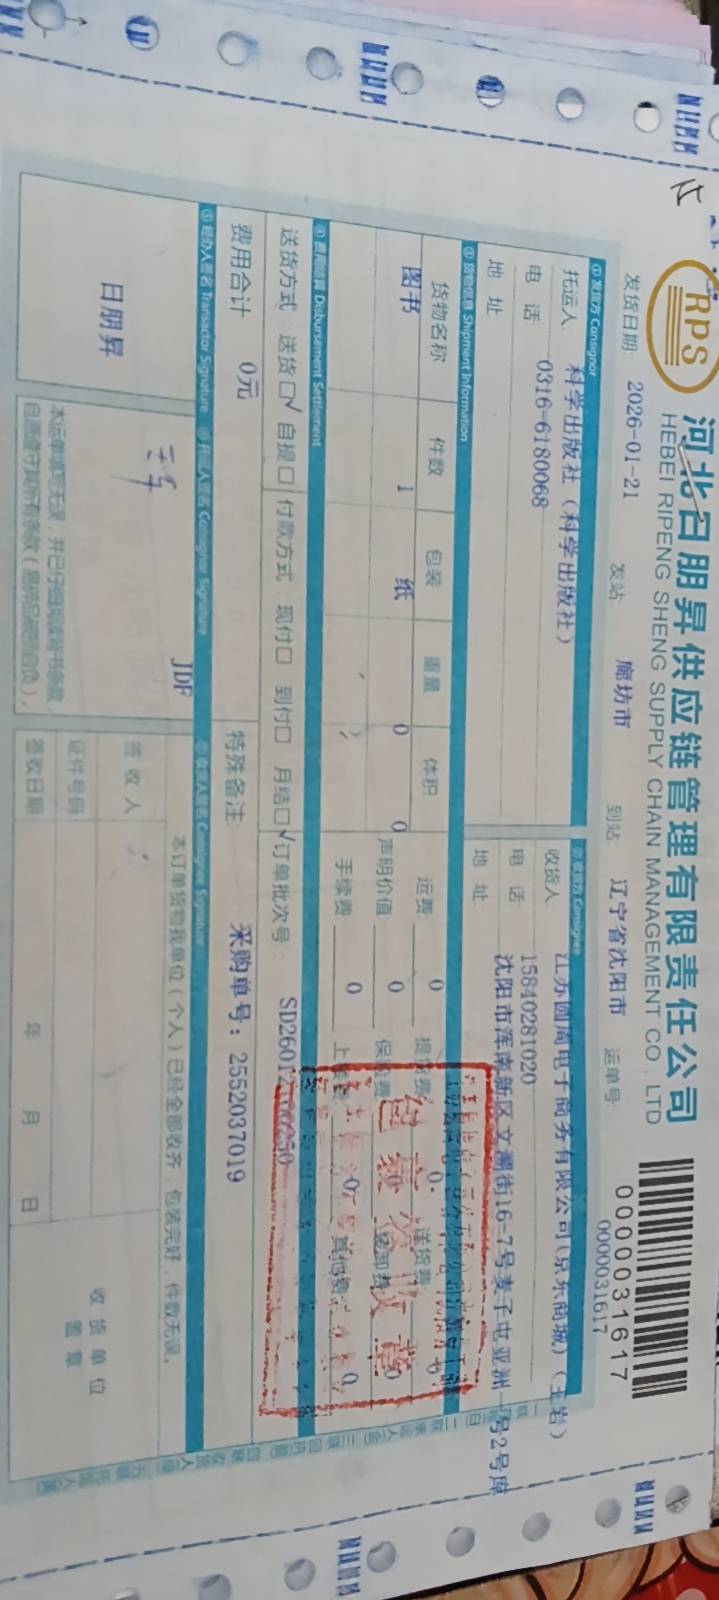 RPS
河北日朋昇供应链管理有限责任公司
HEBEI RIPENG SHENG SUPPLY CHAIN MANAGEMENT CO., LTD
0000031617
0000031617
发货日期: 2026-01-21 发站: 廊坊市 到站: 辽宁省沈阳市 运单号:
① 发货方 Consignor
② 收货方 Consignee
托运人 科学出版社(科学出版社)
收货人 江苏圆周电子商务有限公司(京东商城)(王岩)
电 话 0316-6180068
电 话 15840281020
地 址
地 址 沈阳市浑南新区文溯街16-7号麦子屯亚洲一号2号库
③ 货物信息 Shipment Information
货物名称 件数 包装 重量 体积
图书 1 纸 0 0
运费: 0 提货费: 0 送货费: 0
声明价值: 0 保险费: 0 装卸费: 0
手续费: 0 上楼费: 0 其他费: 0
包装签收章
④ 费用结算 Disbursement Settlement
送货方式: 送货□√ 自提□ 付款方式: 现付□ 到付□ 月结□√ 订单批次号:
费用合计 0元 特殊备注: 采购单号: 2552037019
⑤ 经办人签名 Transactor Signature
⑥ 托运人签名 Consignor Signature
⑦ 收货人签名 Consignee Signature
日朋昇
JDF
本订单货物我单位(个人)已经全部收齐,包装完好,件数无误。
签 收 人
证件号码
签收日期 年 月 日
收 货 单 位
盖 章